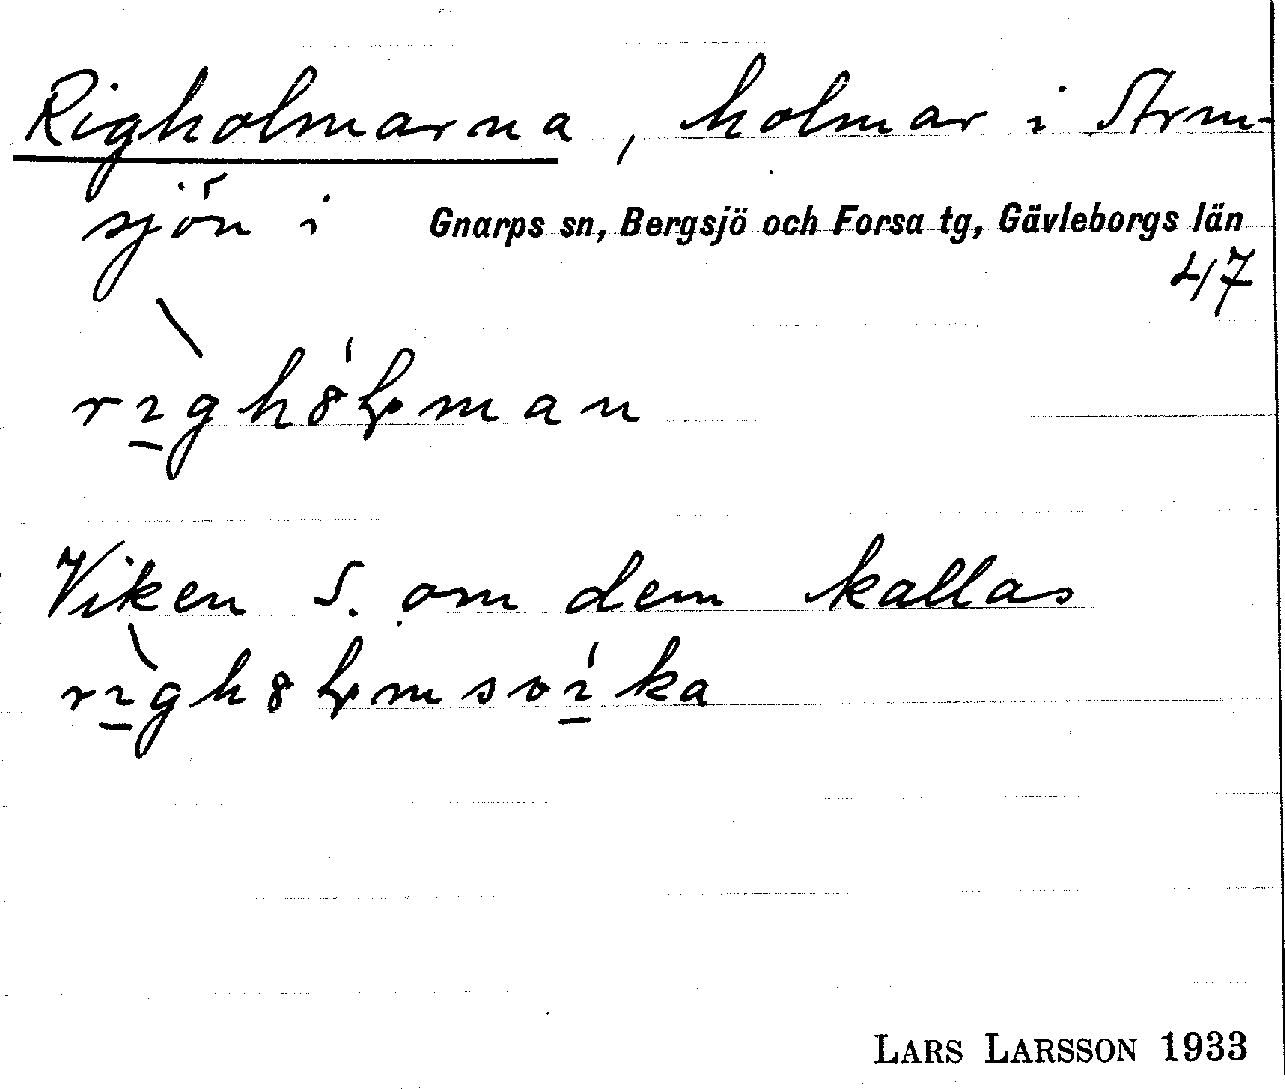 Righolmarna, holmar i Strm-
sjön i Gnarps sn, Bergsjö och Forsa tg, Gävleborgs län
47
Viken S. om dem kallas
LARS LARSSON 1933